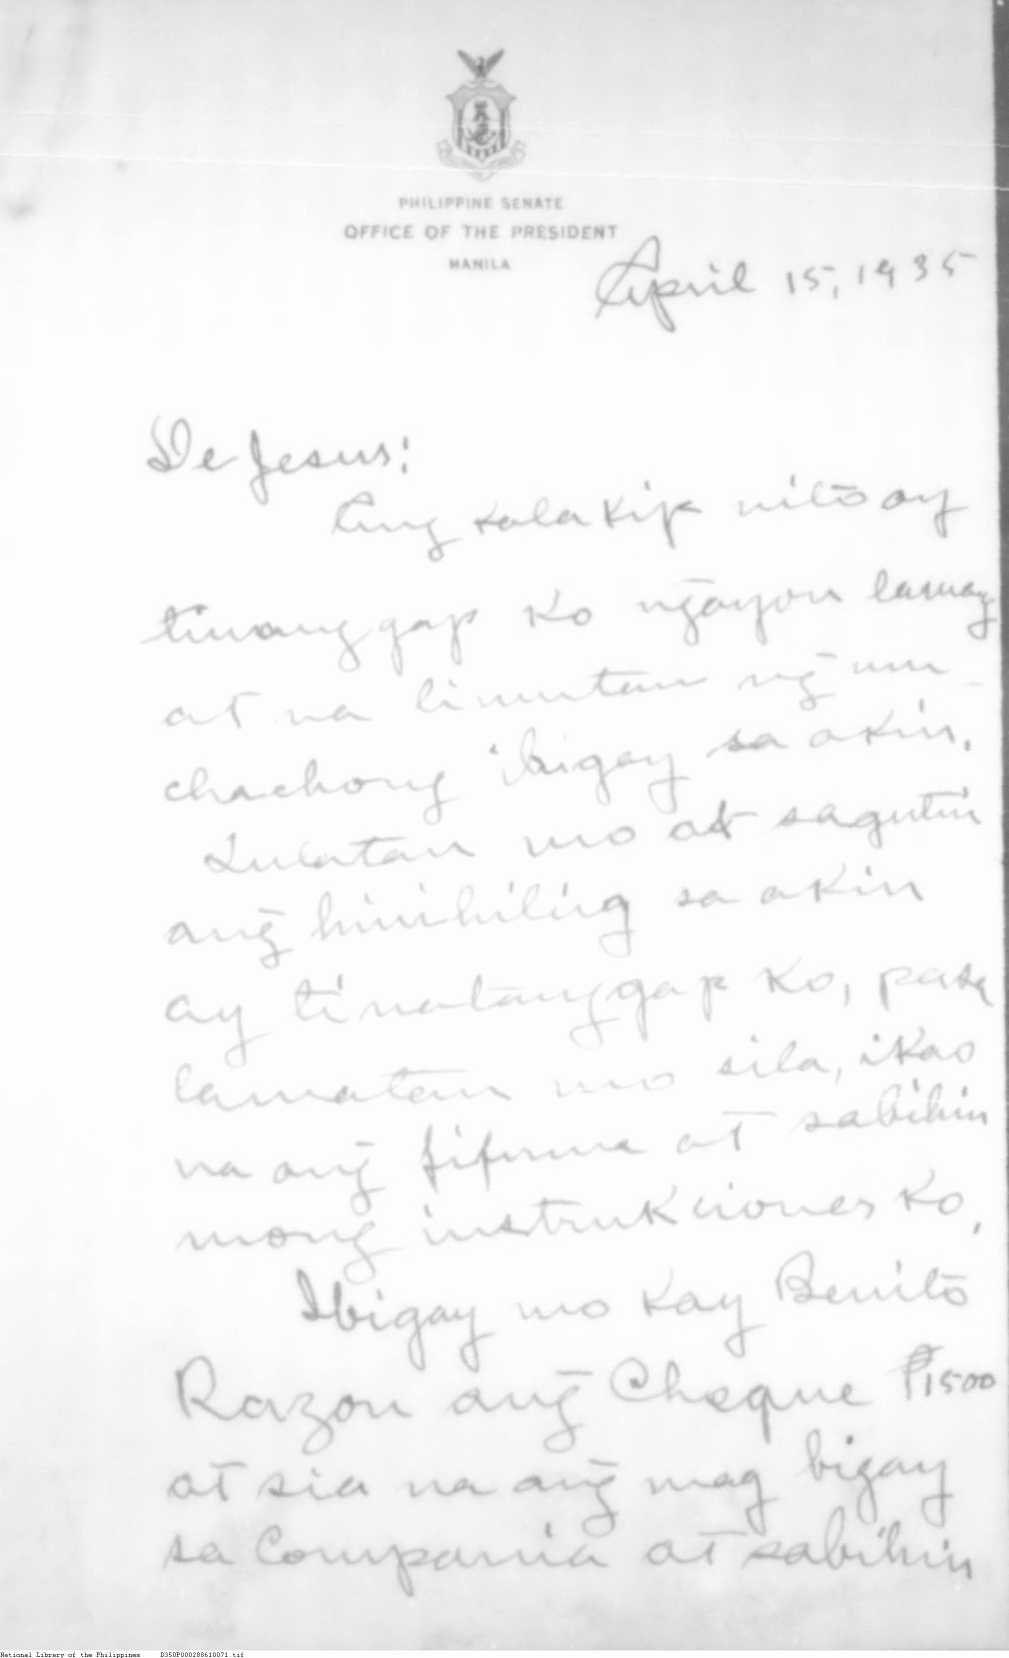 PHILIPPINE SENATE
OFFICE OF THE PRESIDENT
MANILA
April 15, 1935
De Jesus:
Ang kalakip nitō ay
tinanggap ko ng̃ayon lamang
at na limutan ng̃ mu
chachong ibigay sa akin.
Sulatan mo at sagutin
ang̃ hinihiling sa akin
ay tinatanggap ko, pasa
lamatan mo sila, ikao
na ang̃ fifirma at sabihin
mong instrukciones ko.
Ibigay mo kay Benito
Razon ang̃ Cheque ₱1500
at sia na ang̃ mag bigay
sa Compania at sabihin
National Library of the Philippines D350P000288610071.tif